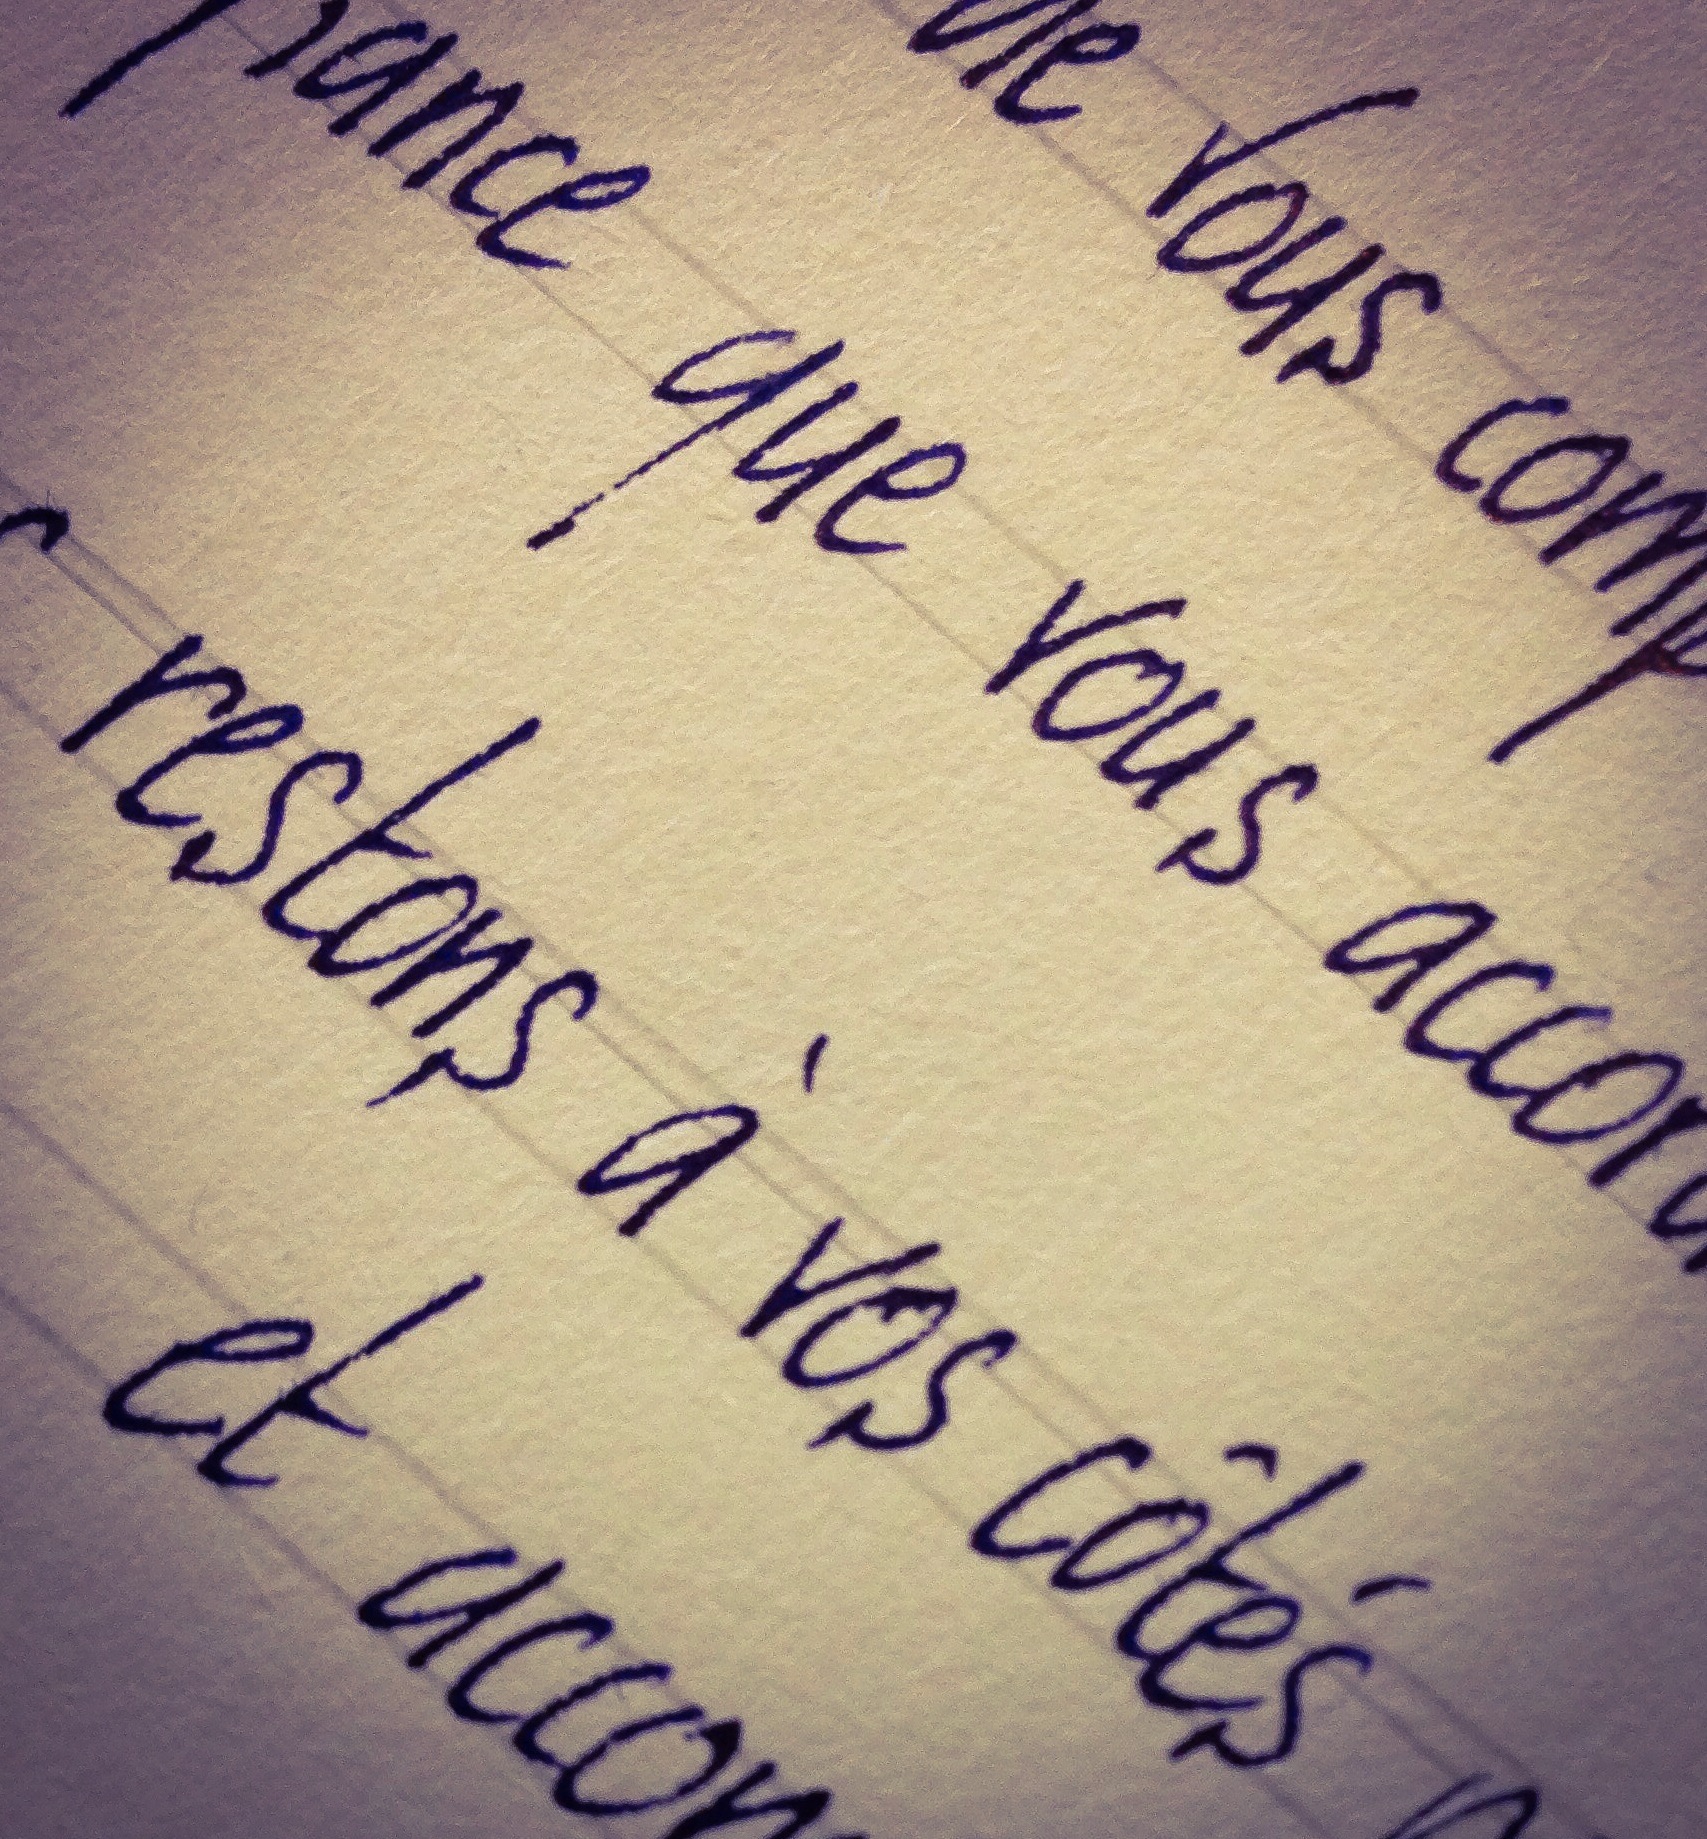 de vous comp
rance que vous accord
r restons à vos côtés p
et accom